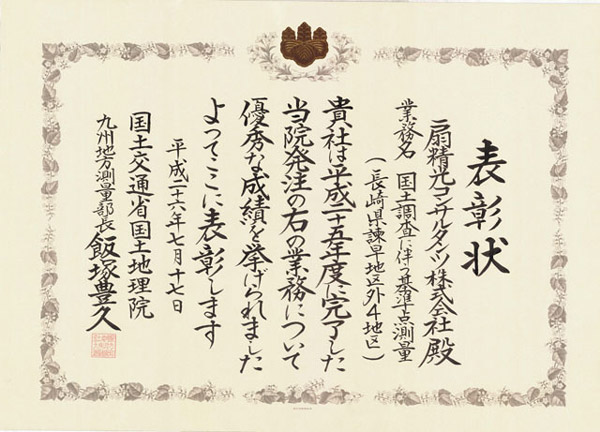 表彰状
扇精光コンサルタンツ株式会社殿
業務名 国土調査に伴う基準点測量
(長崎県諫早地区外4地区)
貴社は平成二十五年度に完了した
当院発注の右の業務について
優秀な成績を挙げられました
よってここに表彰します
平成二十六年七月十七日
国土交通省国土地理院
九州地方測量部長 飯塚豊久